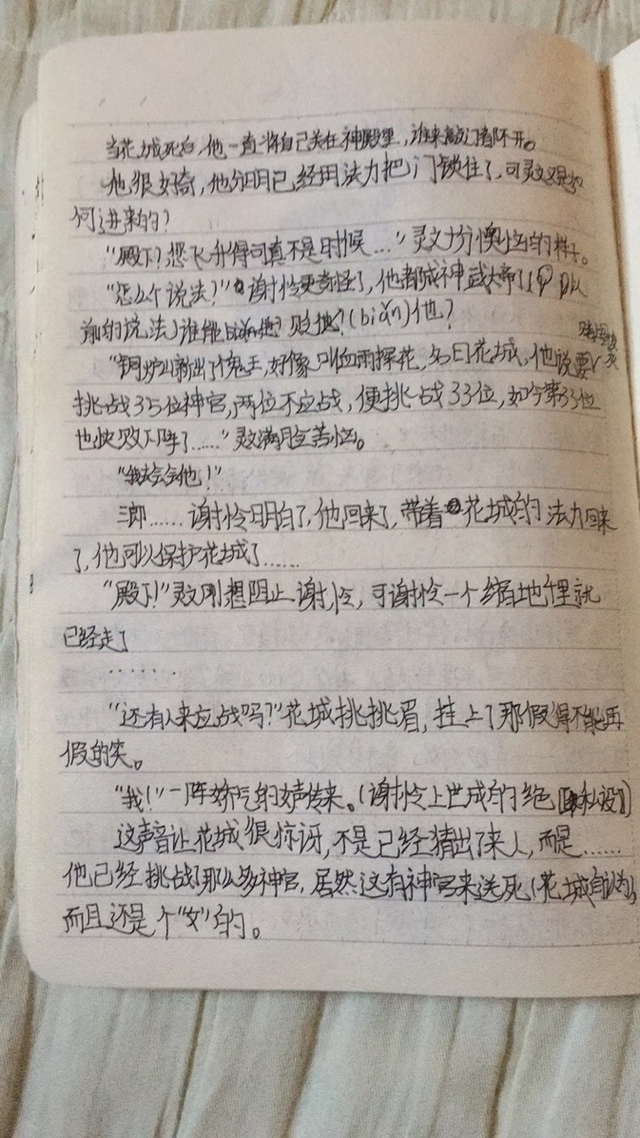 当花城死后,他一直将自己关在神殿里,谁来敲门都不开。
他很好奇,他分明已经用法力把门锁住了,可灵文又是如
何进来的?
“殿下?想飞升得可真不是时候…”灵文十分懊恼的样子。
“怎么个说法?”谢怜更奇怪了,他都成神武大帝了(以
前的说法)谁能 败他?(biǎn)他?
“铜炉山新出了个鬼王,好像叫血雨探花,名曰花城,他说要
挑战35位神官,两位不应战,便挑战33位,如今第33位
也快败下阵了……”灵文满脸苦恼。
“我去会会他!”
三郎……谢怜明白了,他回来了,带着花城的法力回来
了,他可以保护花城了……
“殿下!”灵文刚想阻止谢怜,可谢怜一个缩地千里就
已经走了
……
“还有人来应战吗?”花城挑挑眉,挂上了那假得不能再
假的笑。
“我!”一阵娇气的女声传来。(谢怜上世成的绝 私设)
这声音让花城很惊讶,不是已经猜出了来人,而是……
他已经挑战了那么多神官,居然这有神官来送死(花城自认为),
而且还是个“女”的。